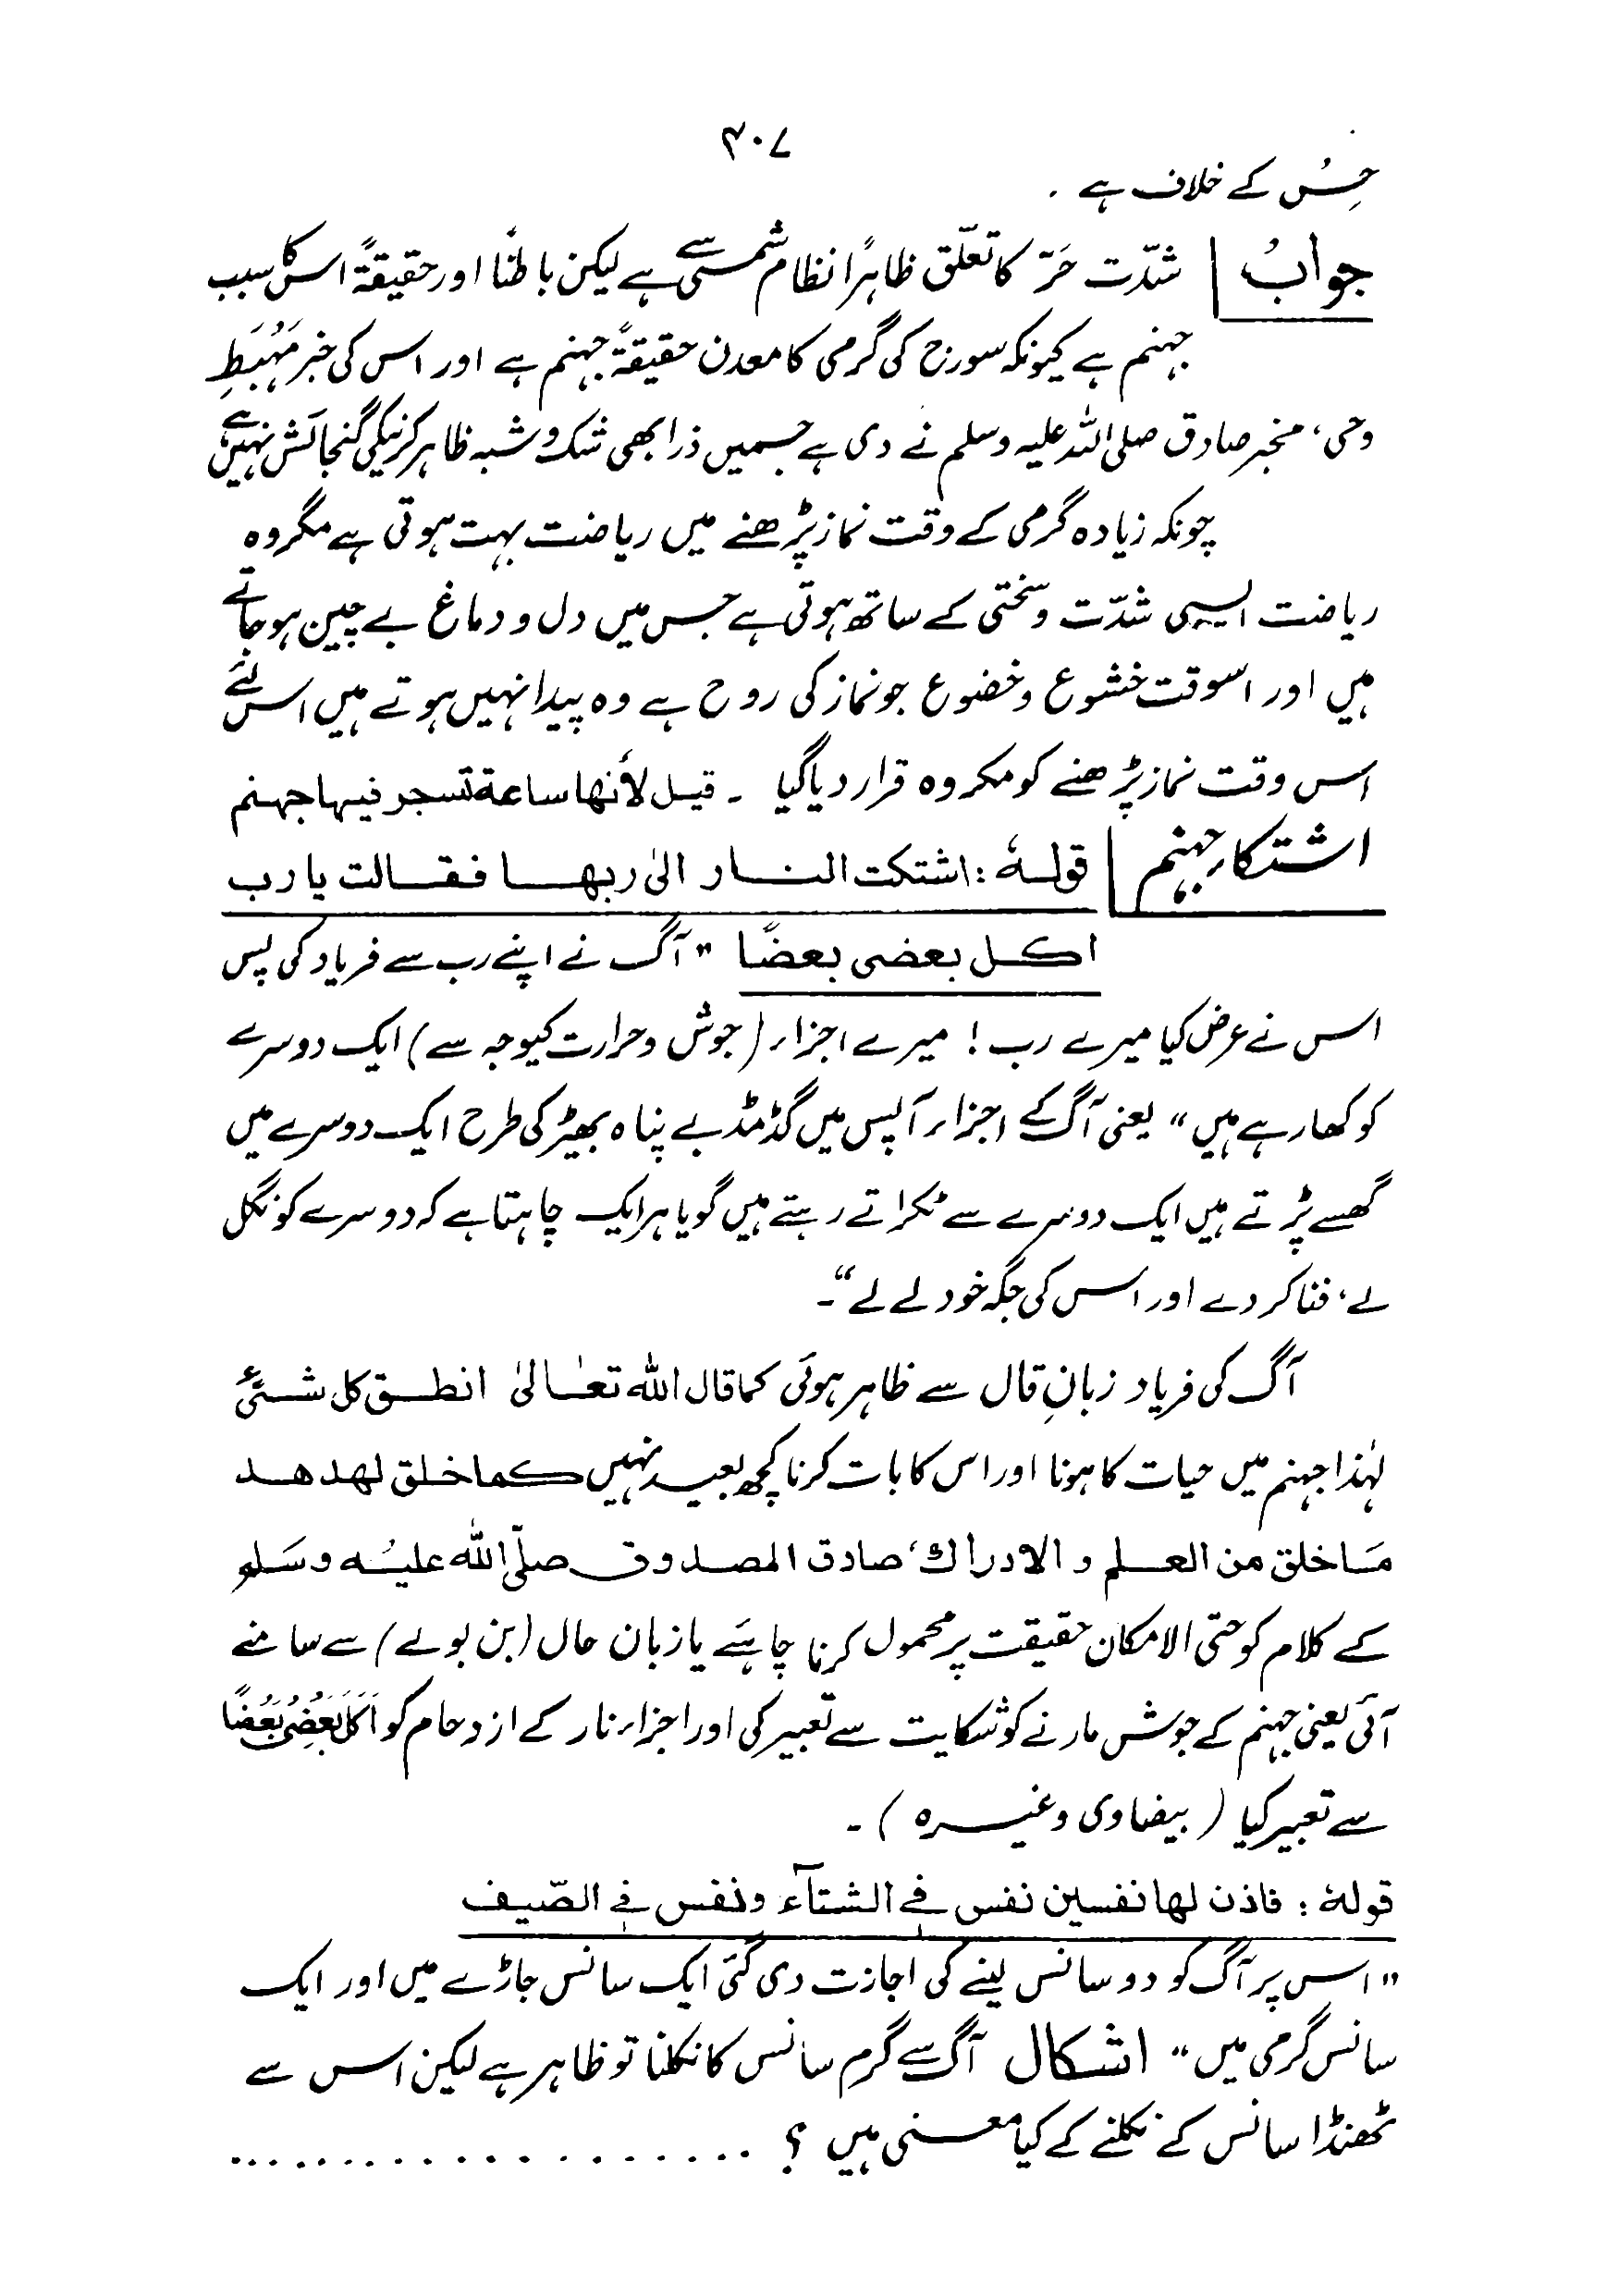 ۴۰۷
حِس کے خلاف ہے ۔
جواب شدّت حَرّ کا تعلّق ظاہرًا نظام شمسی سے ہے لیکن باطنًا اور حقیقۃً اس کا سبب
جہنم ہے کیونکہ سورج کی گرمی کا معدن حقیقۃً جہنم ہے اور اس کی خبر مَہْبَطِ
وحی، مخبر صادق صلی اللہ علیہ وسلم نے دی ہے جسمیں ذرا بھی شک و شبہ ظاہر کرنیکی گنجائش نہیں ہے
چونکہ زیادہ گرمی کے وقت نماز پڑھنے میں ریاضت بہت ہوتی ہے مگر وہ
ریاضت ایسی شدّت و سختی کے ساتھ ہوتی ہے جس میں دل و دماغ بے چین ہو جاتے
ہیں اور اسوقت خشوع و خضوع جو نماز کی روح ہے وہ پیدا نہیں ہوتے ہیں اس لئے
اس وقت نماز پڑھنے کو مکروہ قرار دیا گیا ۔ قیل لأنها ساعة تسجر فیها جهنم
اشتکاء جہنم قولہٗ : اشتکت النار الیٰ ربھا فقالت یا رب
اکل بعضی بعضًا " آگ نے اپنے رب سے فریاد کی پس
اس نے عرض کیا میرے رب ! میرے اجزاء (جوش و حرارت کیوجہ سے) ایک دوسرے
کو کھا رہے ہیں " یعنی آگ کے اجزاء آپس میں گڈمڈ بے پناہ بھیڑ کی طرح ایک دوسرے میں
گھسے پڑتے ہیں ایک دوسرے سے ٹکراتے رہتے ہیں گویا ہر ایک چاہتا ہے کہ دوسرے کو نگل
لے، فنا کر دے اور اس کی جگہ خود لے لے "۔
آگ کی فریاد زبانِ قال سے ظاہر ہوئی کما قال اللہ تعالیٰ انطق کل شئیٔ
لہٰذا جہنم میں حیات کا ہونا اور اس کا بات کرنا کچھ بعید نہیں کما خلق لهدهد
مَا خلق من العلم و الادراك، صادق المصدوق صلّی اللہ علیہ وسَلم
کے کلام کو حتی الامکان حقیقت پر محمول کرنا چاہئے یا زبان حال (بن بولے) سے سامنے
آئی یعنی جہنم کے جوش مارنے کو شکایت سے تعبیر کی اور اجزاء نار کے ازدحام کو اَکَلَ بَعْضِیْ بَعْضًا
سے تعبیر کیا ( بیضاوی وغیرہ ) ۔
قولہٗ : فاذن لها نفسین نفس فی الشتآء ونفس فی الصّیف
" اس پر آگ کو دو سانس لینے کی اجازت دی گئی ایک سانس جاڑے میں اور ایک
سانس گرمی میں " اشکال آگ سے گرم سانس کا نکلنا تو ظاہر ہے لیکن اس سے
ٹھنڈا سانس کے نکلنے کے کیا معنی ہیں ؟ . . . . . . . . . . . . . . . . . . .